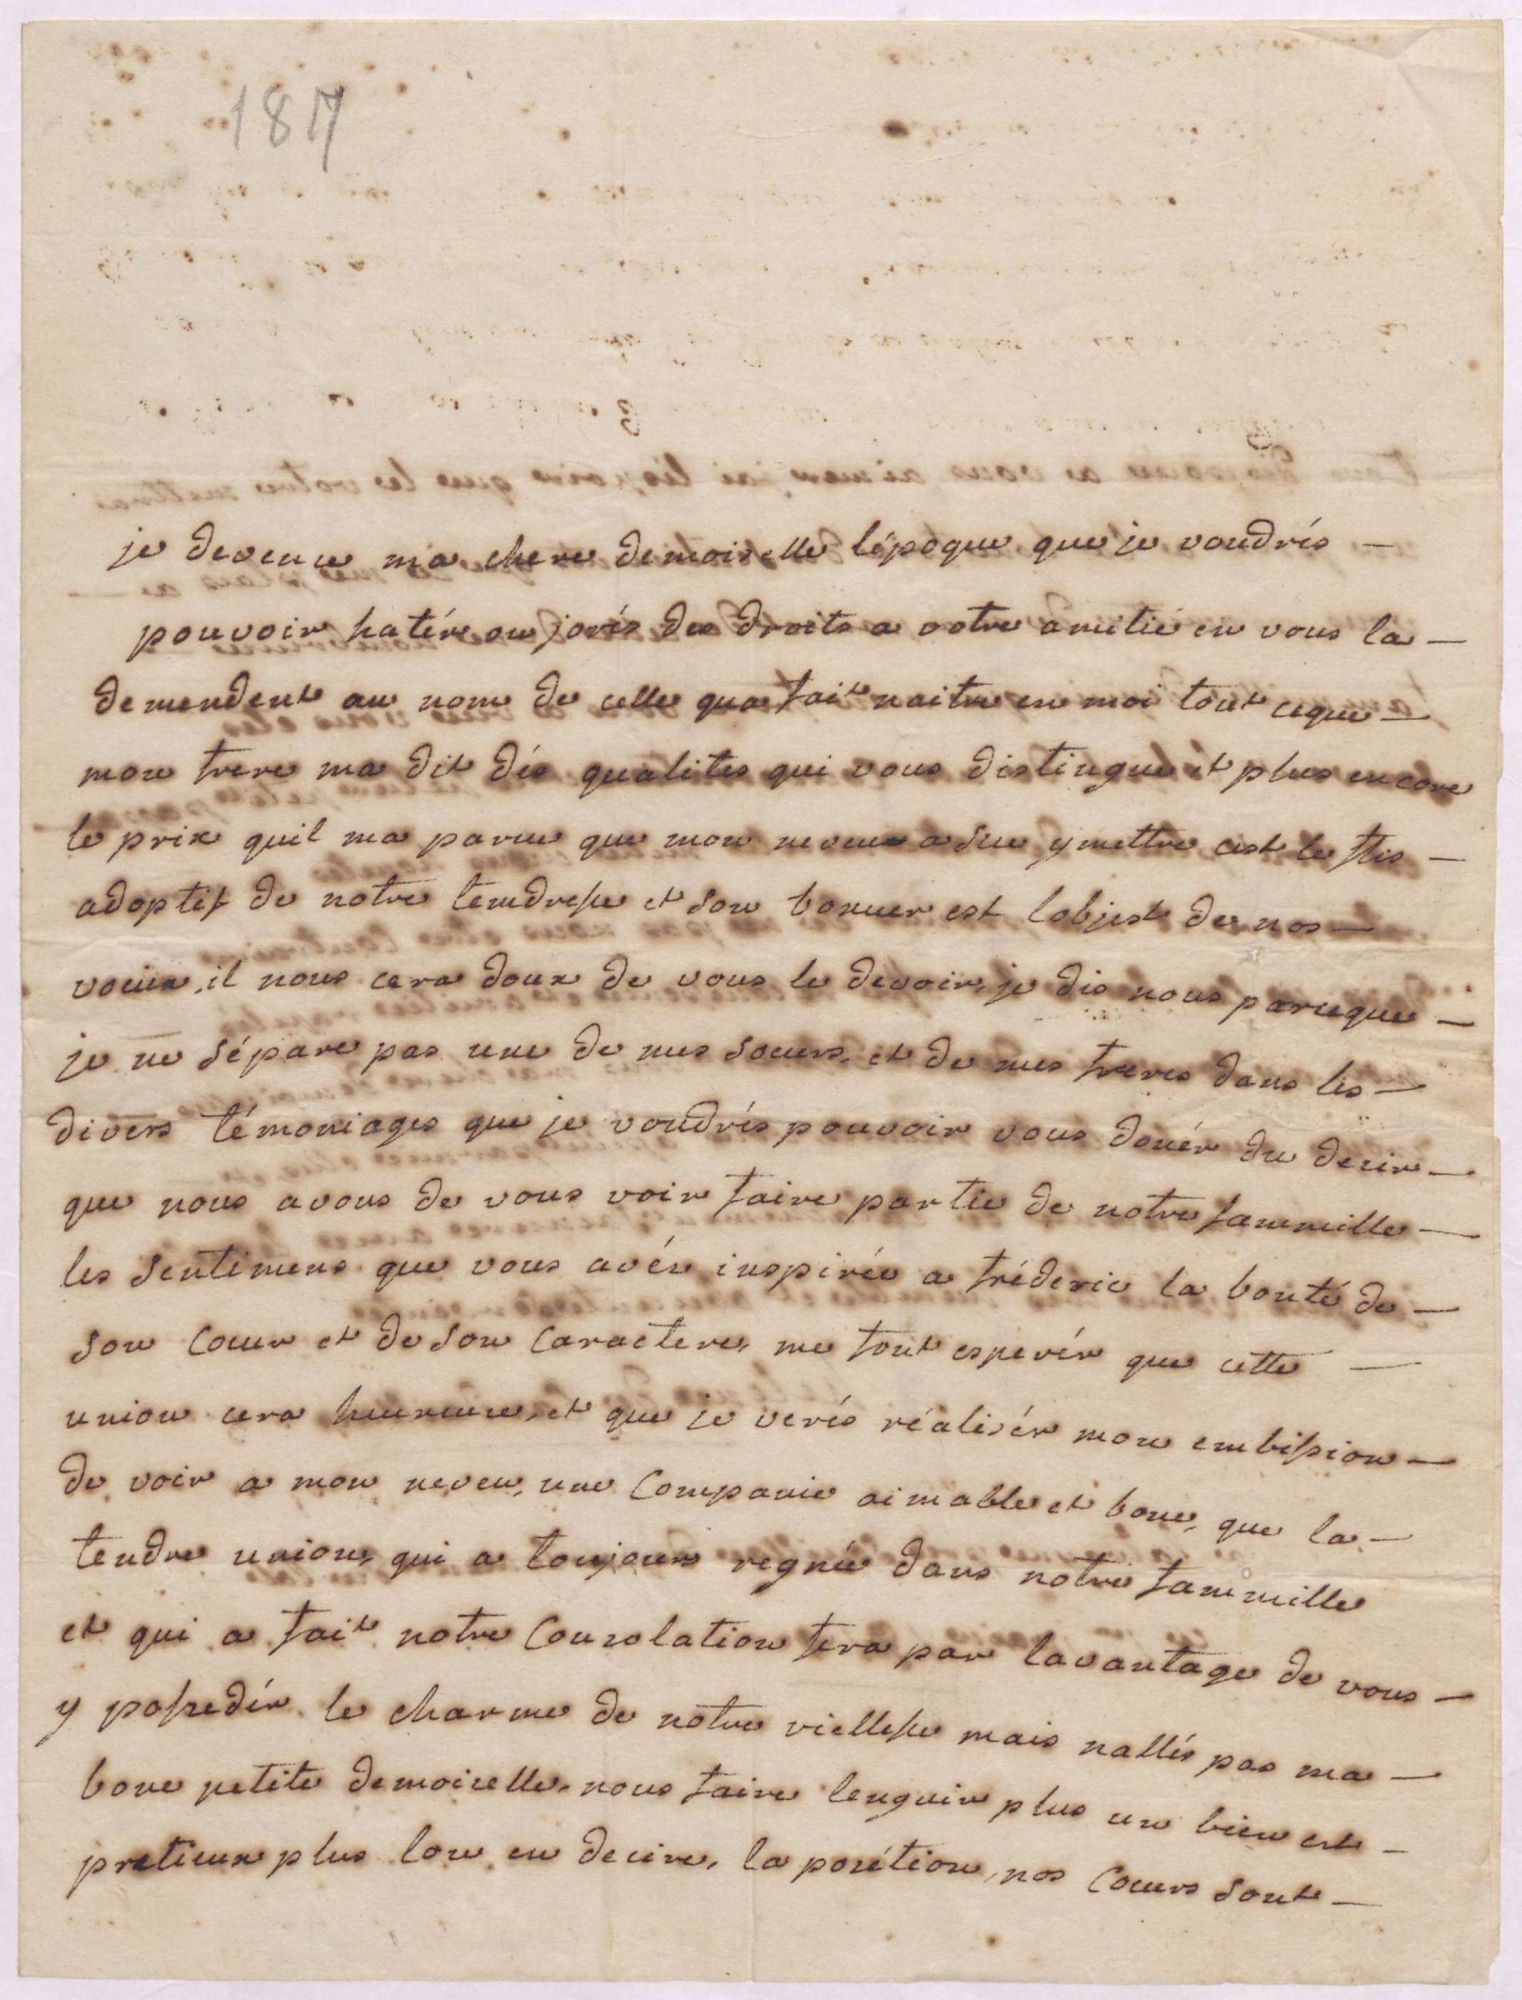 187
je devence ma chere demoiselle lépoque que je voudrés —
pouvoir hatér ou jorés des droits a votre amitié en vous la —
demendent au nom de celle qua fait naitre en moi tout ceque —
mon frere ma dit dés qualites qui vous distingue et plus encore
le prix quil ma parue que mon neveux a sue y mettre cest le fils —
adoptif de notre tendresse et son bonuer est lobjest de nos —
voeux, il nous cera doux de vous le devoir, je dis nous parceque —
je ne sépare pas une de mes soeurs, et de mes freres dans les —
divers témoniages que je voudrés pouvoir vous donér du decir —
que nous avons de vous voir faire partie de notre fammille —
les sentimens que vous avéz inspirée a fréderic la bonté de —
son coeur et de son caractere, me font esperér que cette —
union cera heureuse, et que je verés réalisér mon embission —
de voir a mon neveu, une companie aimable et bone, que la —
tendre union, qui a toujours regnée dans notre fammille
et qui a fait notre consolation fera par lavantage de vous —
y possedér le charme de notre viellesse mais nallés pas ma —
bone petite demoiselle, nous faire lenguir plus un bien est —
pretieux plus lon en decire, la posétion, nos coeurs sont —